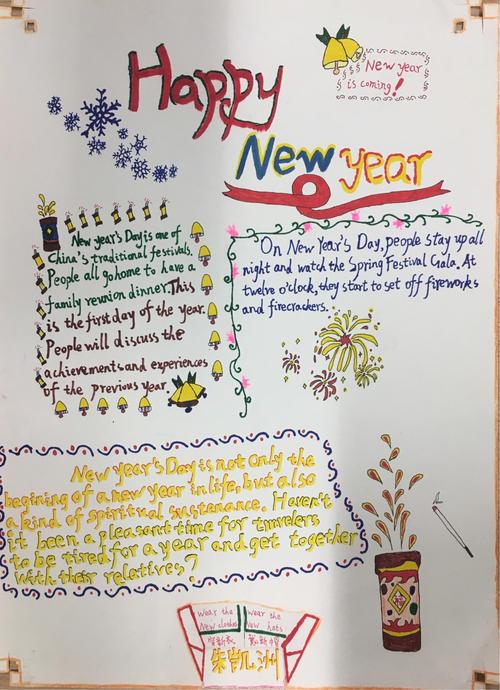 Happy
New year
New year
is coming!
New year's Day is one of
China's traditional festivals.
People all go home to have a
family reunion dinner. This
is the first day of the year.
People will discuss the
achievements and experiences
of the previous year
On New Year's Day, people stay up all
night and watch the Spring Festival Gala. At
twelve o'clock, they start to set off fireworks
and firecrackers.
New year's Day is not only the
begining of a new year in life, but also
a kind of spiritual sustenance. Haven't
it been a pleasant time for travelers
to be tired for a year and get together
with their relatives?
Wear the
New clothes
Wear the
New hats
穿新衣
戴新帽
朱凯洲